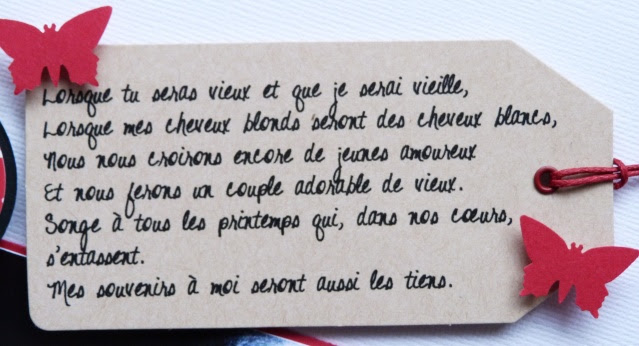 Lorsque tu seras vieux et que je serai vieille,
Lorsque mes cheveux blonds seront des cheveux blancs,
Nous nous croirons encore de jeunes amoureux
Et nous ferons un couple adorable de vieux.
Songe à tous les printemps qui, dans nos cœurs,
s'entassent.
Mes souvenirs à moi seront aussi les tiens.